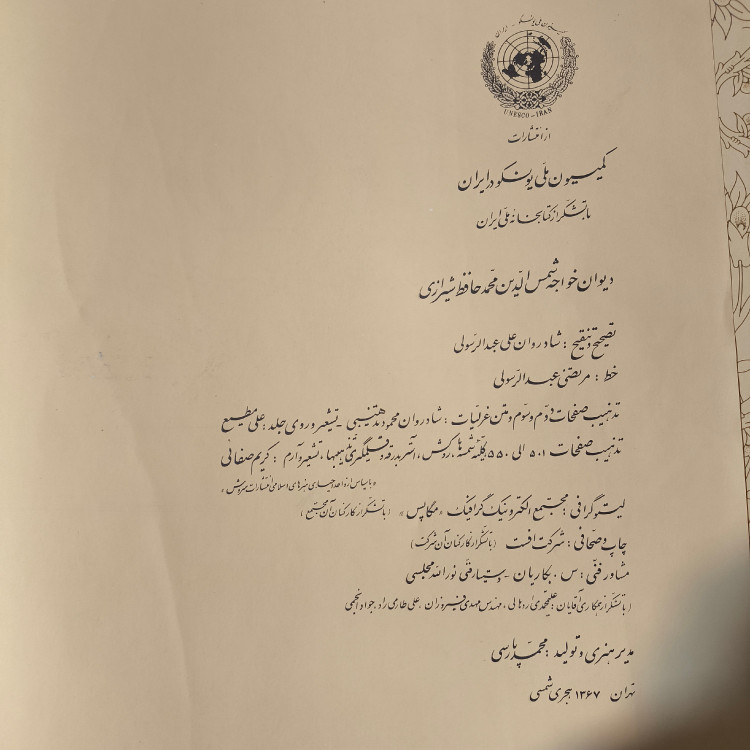 کمیسیون ملی یونسکو - ایران
UNESCO - IRAN
از انتشارات
کمیسیون ملّی یونسکو در ایران
با تشکّر از کتابخانهٔ ملّی ایران
دیوان خواجه شمس الدّین محمّد حافظ شیرازی
تصحیح و تنقیح : شادروان علی عبدالرّسولی
خط : مرتضی عبدالرّسولی
تذهیب صفحات دوّم و سوّم و متن غزلیات : شادروان محمود تذهیبی - تشعیر و روی جلد : علی مطیع
تذهیب صفحات ۵۰۱ الی ۵۵۰، کلیّه شمسه‌ها، روکش، آستر بدرقه و قلمگیری تذهیبها، تشعیر و آرم : کریم صفائی
« با سپاس از واحد احیای هنرهای اسلامی انتشارات سروش »
لیتوگرافی : مجتمع الکترونیک گرافیک « مگاپس » ( با تشکّر از کارکنان آن مجتمع )
چاپ و صحّافی : شرکت افست ( با تشکّر از کارکنان آن شرکت )
مشاور فنّی : س . بکاریان - دستیار فنّی نورالله مجلسی
( با تشکّر از همکاری آقایان : علیمحمدی اردهالی ، مهندس مهدی فیروزان ، علی طارمی راد ، جواد نجمی
مدیر هنری و تولید : محمّد پارسی
تهران ۱۳۶۷ هجری شمسی